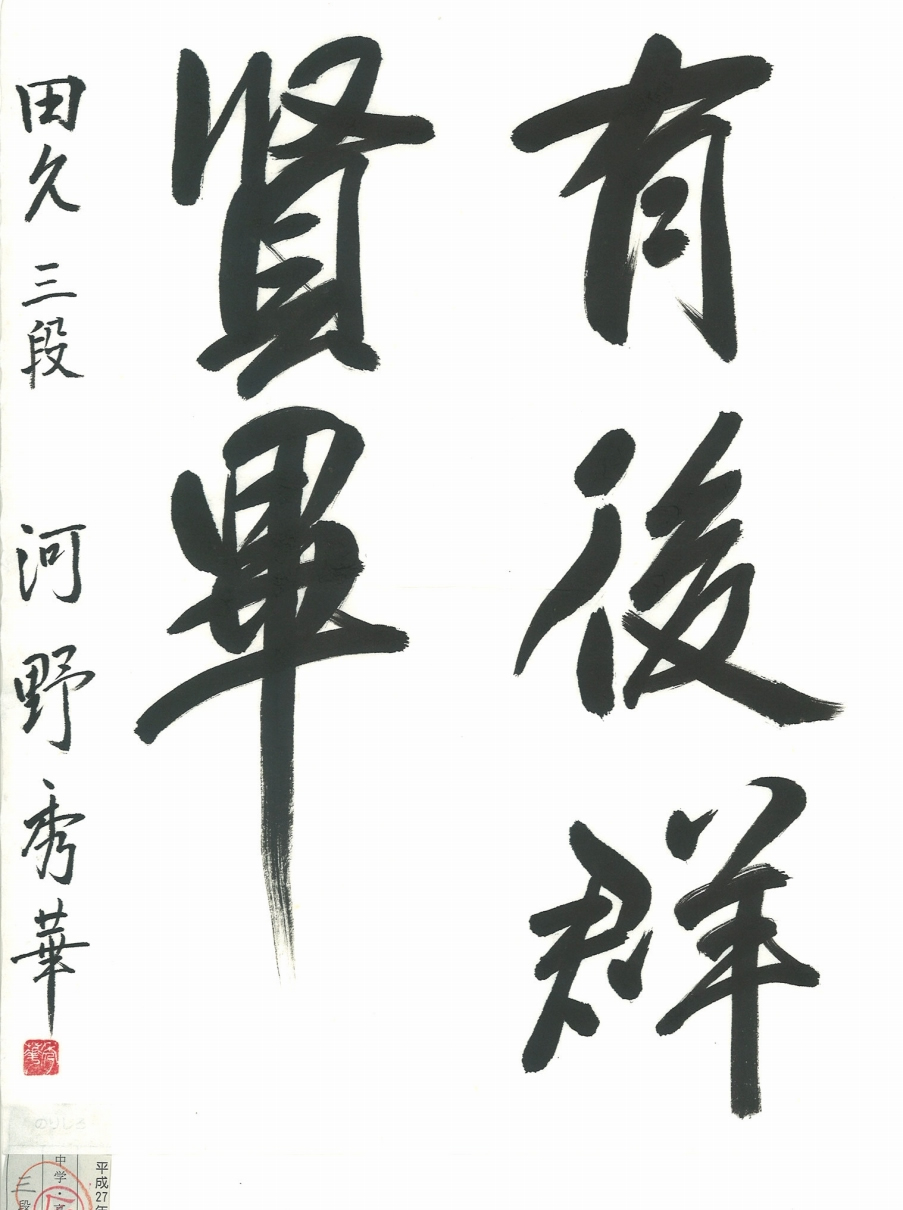 有後群
賢畢
田久 三段 河野秀華
のりしろ
平成27年
中学・高
三段